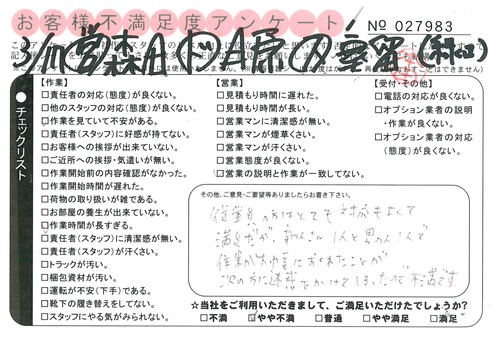 お客様不満足度アンケート
No 027983
【作業】
□責任者の対応（態度）が良くない。
□他のスタッフの対応（態度）が良くない。
□作業を見ていて不安がある。
□責任者（スタッフ）に好感が持てない。
□お客様への挨拶が出来ていない。
□ご近所への挨拶・気遣いが無い。
□作業開始前の内容確認がなかった。
□作業開始時間が遅れた。
□荷物の取り扱いが雑である。
□お部屋の養生が出来ていない。
□作業時間が長すぎる。
□責任者（スタッフ）に清潔感が無い。
□責任者（スタッフ）が汗くさい。
□トラックが汚い。
□梱包資材が汚い。
□運転が不安（下手）である。
□靴下の履き替えをしてない。
□スタッフにやる気がみられない。
【営業】
□見積もり時間に遅れた。
□見積もり時間が長い。
□営業マンに清潔感が無い。
□営業マンが煙草くさい。
□営業マンが汗くさい。
□営業態度が良くない。
□営業マンの説明が良くない。
□営業マンに対して一言。
【受付・その他】
□電話の対応が良くない。
□オプション業者の説明・作業が良くない。
□オプション業者の対応（態度）が良くない。
チェックリスト
その他、ご意見・ご要望等ありましたらお書き下さい。
従業員の方はとても対応もよくて
満足だが、新人さん1人と男の人1人で
作業が大幅におくれたことが
次の方に迷惑をかけてしまったので不満です。
☆当社をご利用いただきまして、ご満足いただけたでしょうか？
□不満 □やや不満 □普通 □やや満足 □満足